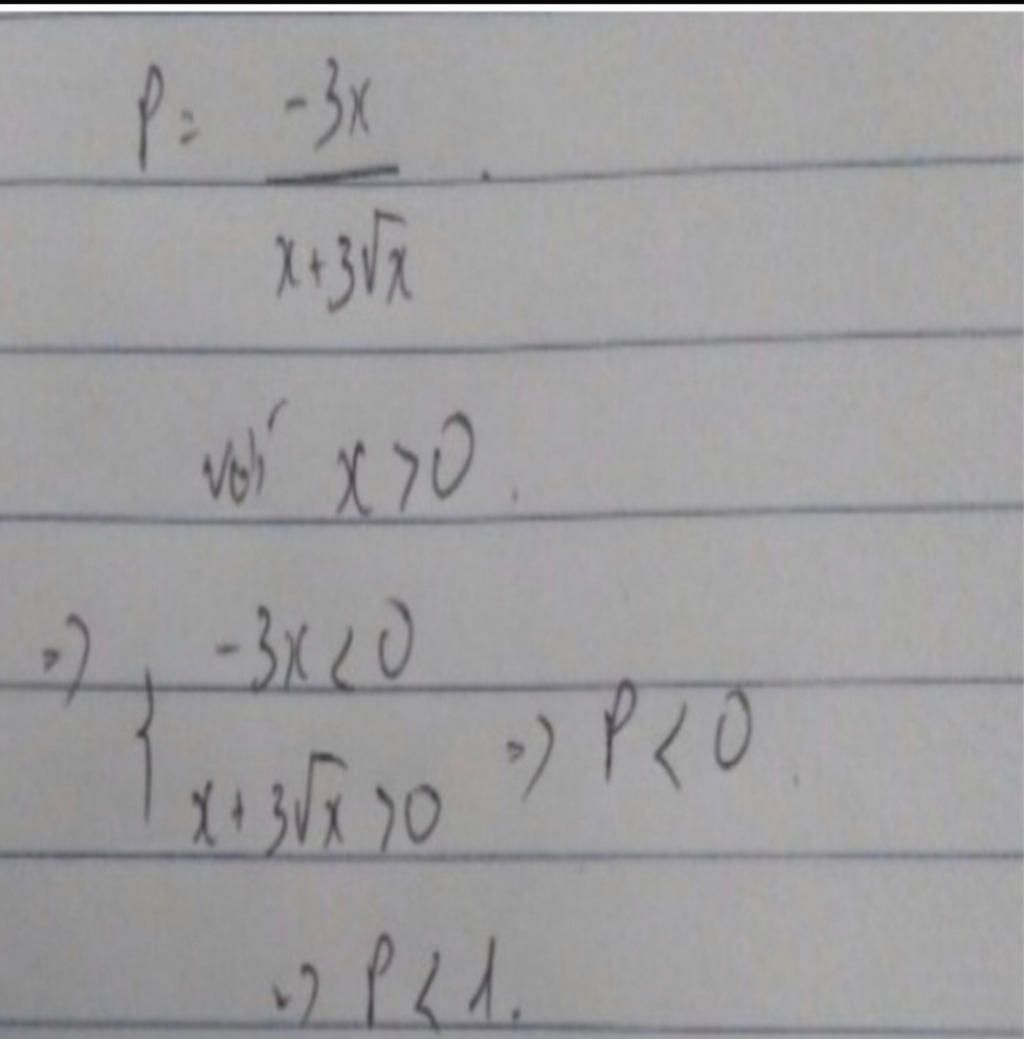 P = -3x
x+3√x
với x>0.
=> { -3x<0
x+3√x>0 => P<0.
=> P<1.